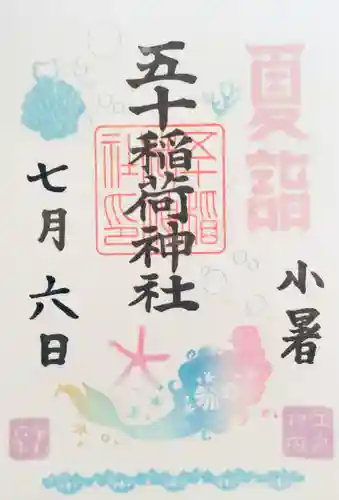 夏詣
五十稲荷神社
小暑
七月六日